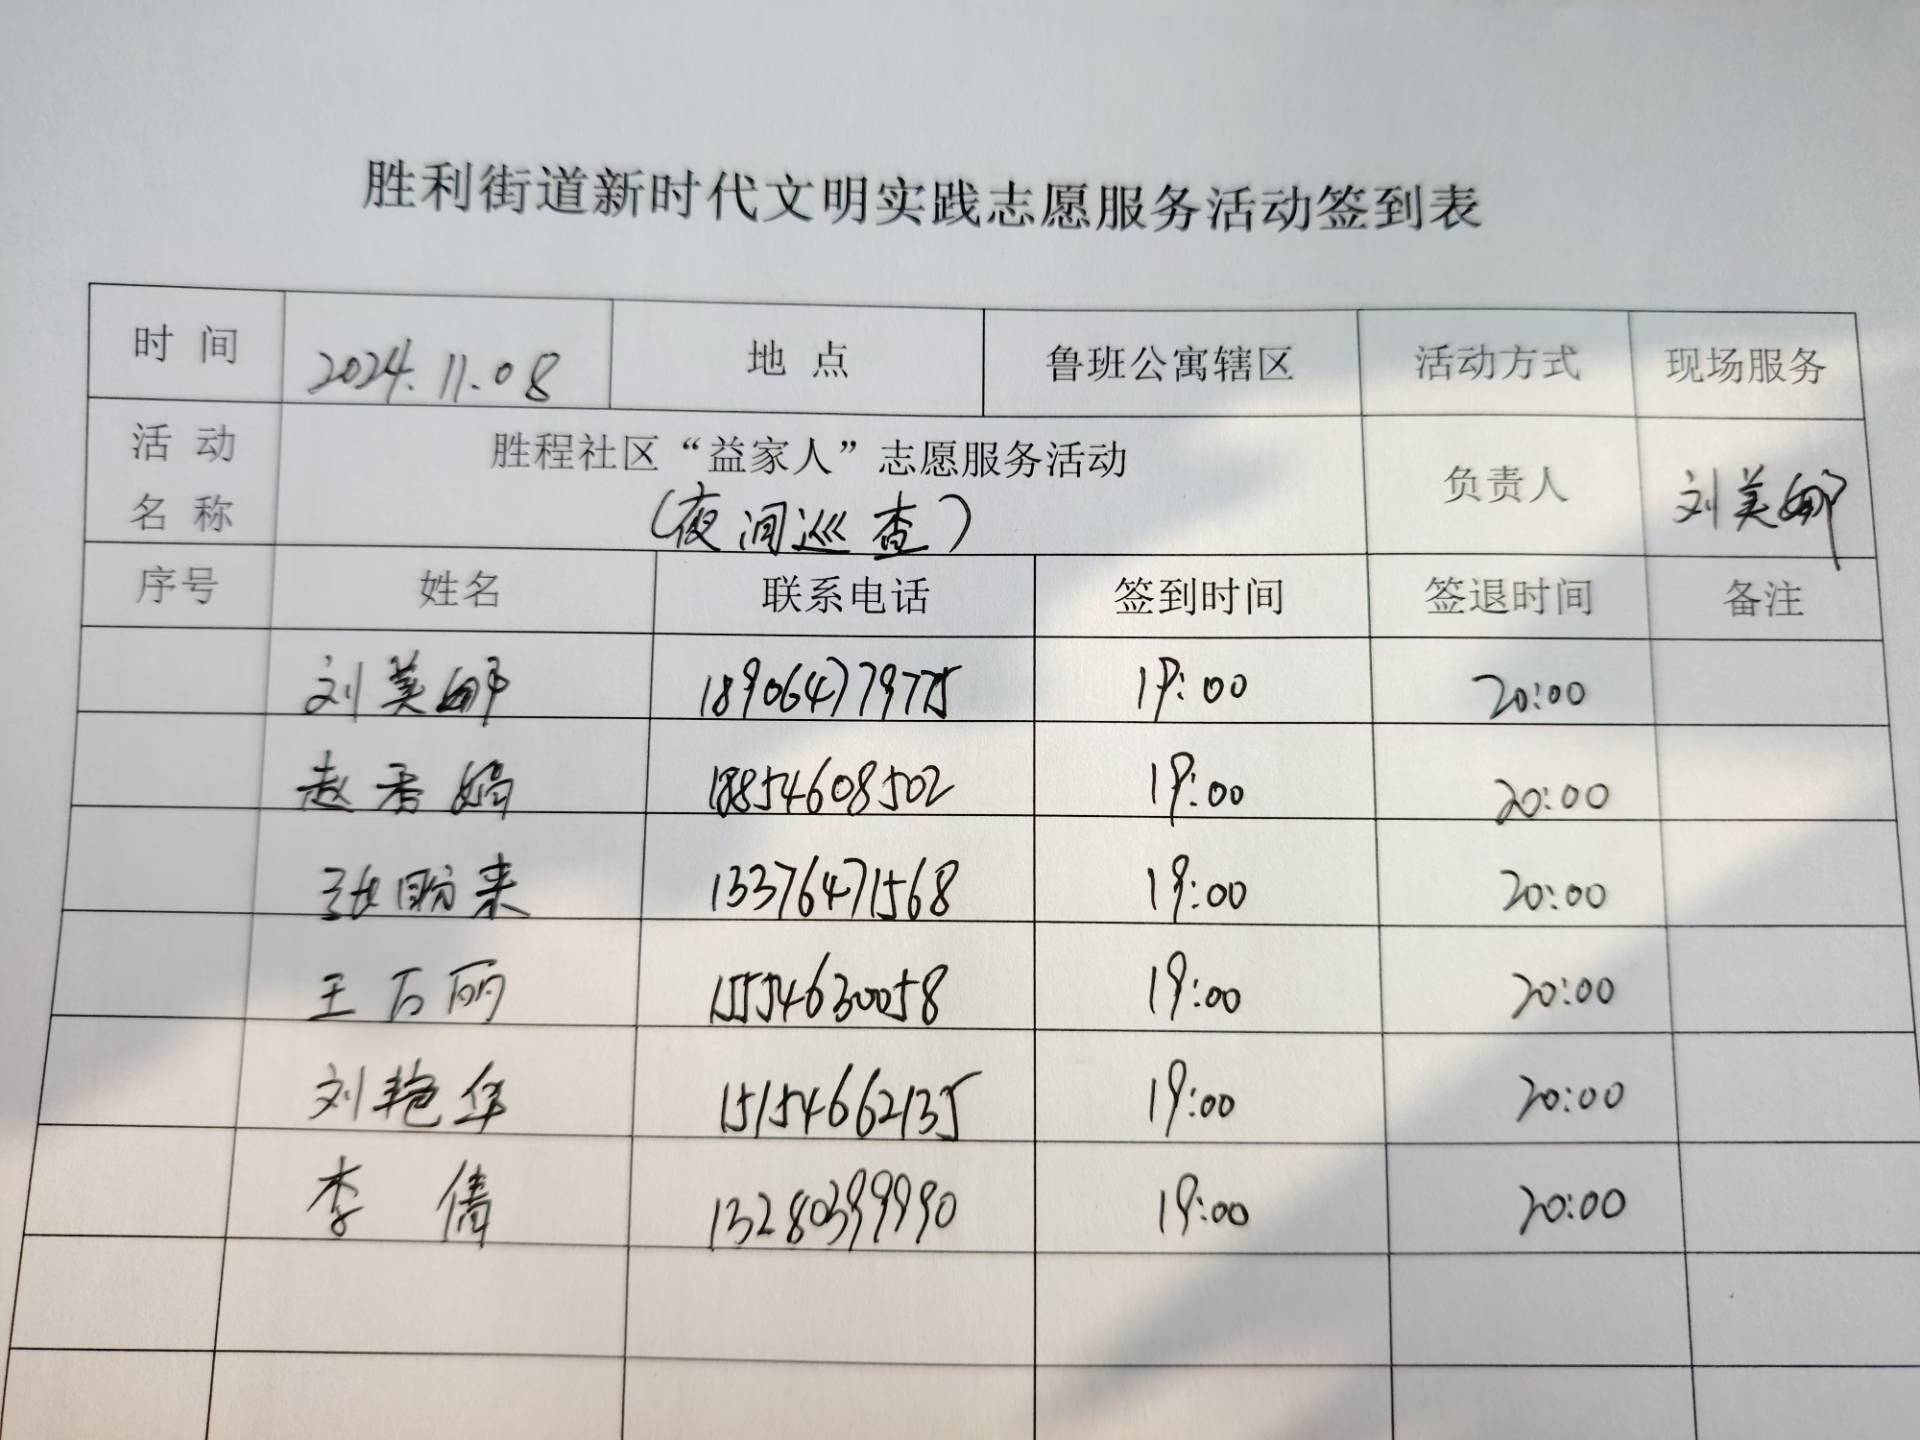 胜利街道新时代文明实践志愿服务活动签到表
时 间 2024.11.08 地 点 鲁班公寓辖区 活动方式 现场服务
活 动 名 称 胜程社区“益家人”志愿服务活动 负责人 刘美娜
(夜间巡查)
序号 姓名 联系电话 签到时间 签退时间 备注
刘美娜 18906479775 19:00 20:00
赵香娟 18854608502 19:00 20:00
张盼来 13376471568 19:00 20:00
王万丽 15554630058 19:00 20:00
刘艳华 15154662135 19:00 20:00
李倩 13280399990 19:00 20:00